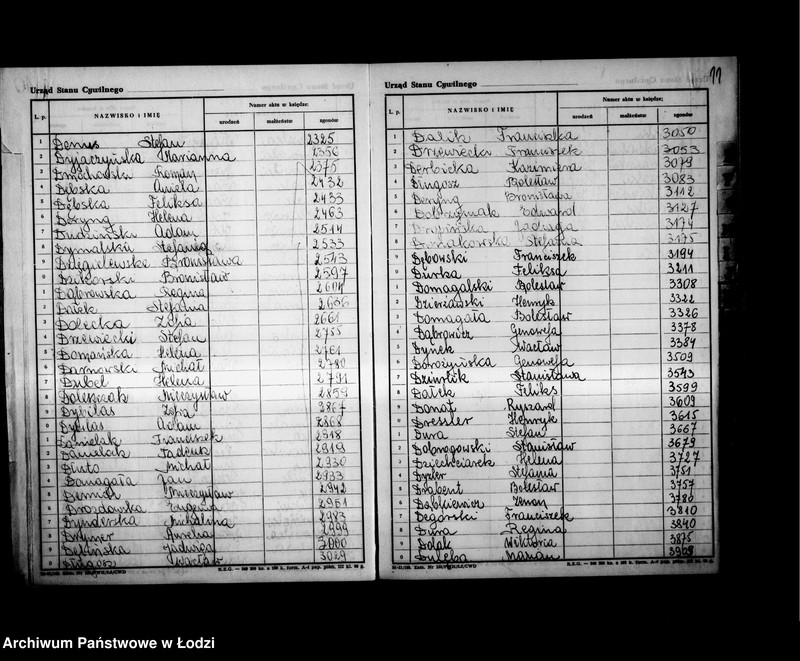 Urząd Stanu Cywilnego
L. p. NAZWISKO i IMIĘ Numer aktu w księdze:
urodzeń małżeństw zgonów
1 Denus Stefan 2325
2 Marianna 2356
3 Roman 2375
4 Dębska Aniela 2432
5 Dębska Feliksa 2433
6 Helena 2463
7 Dudziński Adam 2514
8 Dymalska Stefania 2533
9 Bronisława 2543
0 Dzikorski Bronisław 2597
1 Dąbrowska Regina
2 Datek Stefania 2636
3 Dolecka Zofia 2661
4 Drzewiecki Stefan 2755
5 Domańska Helena 2761
6 Darnowski Michał 2780
7 Dubel Helena 2791
8 Doleszczak Mieczysław 2859
9 Dybilas Zofia 2867
0 Dybilas Adam 2868
1 Danielak Franciszek 2918
2 Danielak 2919
3 Dinto Michał 2930
4 Domagała Jan 2933
5 Mieczysław 2942
6 Drozdowska Eugenia 2951
7 Dynderska Michalina 2983
8 Drymer Aurelia 2999
9 Dębińska Jadwiga 3000
0 Długosz Wacław 3029
Urząd Stanu Cywilnego
11
L. p. NAZWISKO i IMIĘ Numer aktu w księdze:
urodzeń małżeństw zgonów
1 Dalik Franciszka 3050
2 Drzewiecki Franciszek 3053
3 Derbicka Kazimiera 3079
4 Długosz Bolesław 3083
5 Bronisława 3112
6 Edward 3127
7 Drupińska Jadwiga 3174
8 Domalkowska Stefania 3175
9 Dębowski Franciszek 3194
0 Durka Feliksa 3211
1 Domagalski Bolesław 3308
2 Dzierżawski Henryk 3322
3 Domagała Bolesław 3326
4 Dąbrowicz Genowefa 3378
5 Dynek Wacław 3384
6 Dorożyńska Genowefa 3509
7 Stanisława 3543
8 Datek Feliks 3599
9 Donat Ryszard 3609
0 Dressler Henryk 3615
1 Dura Stefan 3667
2 Dobrogowski Stanisław 3679
3 Dziechciarek Helena 3727
4 Dyzler Stefania 3751
5 Drabent Bolesław 3757
6 Dąbkiewicz Zenon 3780
7 Degórski Franciszek 3810
8 Dura Regina 3840
9 Dolak Wiktoria 3875
0 Duleba Marian
Archiwum Państwowe w Łodzi